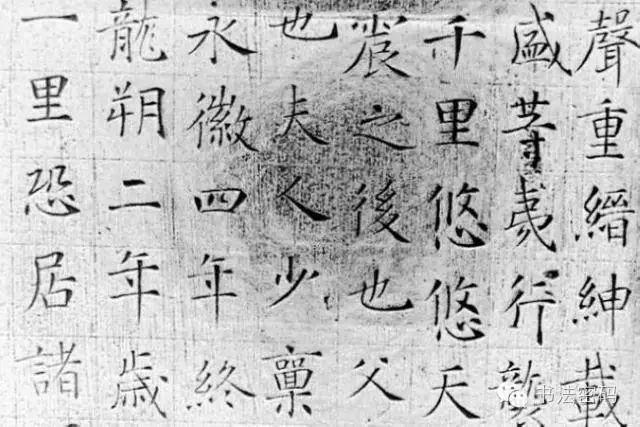 聲重縉紳載
盛䓁夷行
千里悠悠天
之後也父
也夫人少稟
永徽四年終
龍朔二年歲
一里恐居諸
书法密码